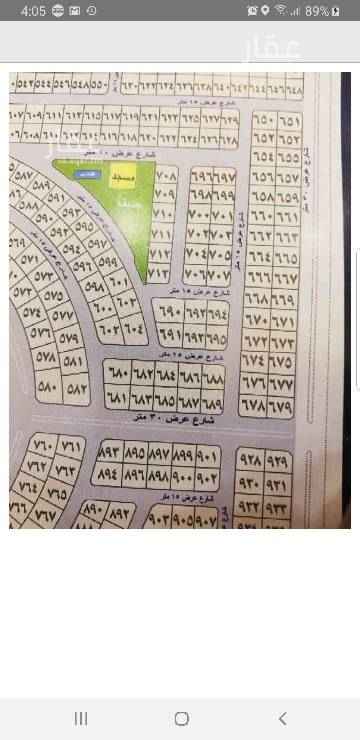 4:05
89%
عقار
٥٤٢ ٥٤٤ ٥٤٦ ٥٤٨ ٥٥٠
٦٢٠ ٦٢٢ ٦٢٤ ٦٢٦ ٦٢٨ ٦٤٠ ٦٤٢ ٦٤٤ ٦٤٦ ٦٤٨
شارع عرض ١٥ متر
٦٠٧ ٦٠٩ ٦١١ ٦١٣ ٦١٥ ٦١٧ ٦١٩ ٦٢١ ٦٢٣ ٦٢٥ ٦٢٧ ٦٢٩
٦٠٦ ٦٠٨ ٦١٠ ٦١٢ ٦١٤ ٦١٦ ٦١٨ ٦٢٠ ٦٢٢ ٦٢٤ ٦٢٦ ٦٢٨
شارع عرض ١٠ متر
٦٥٠ ٦٥١
٦٥٢ ٦٥٣
٦٥٤ ٦٥٥
٦٥٦ ٦٥٧
٦٥٨ ٦٥٩
٦٦٠ ٦٦١
٦٦٢ ٦٦٣
٦٦٤ ٦٦٥
٦٦٦ ٦٦٧
٦٦٨ ٦٦٩
٦٧٠ ٦٧١
٦٧٢ ٦٧٣
٦٧٤ ٦٧٥
٦٧٦ ٦٧٧
٦٧٨ ٦٧٩
مسجد
٧٠٨
٧٠٩
٧١٠
٧١١
٧١٢
٧١٣
٦٩٦ ٦٩٧
٦٩٨ ٦٩٩
٧٠٠ ٧٠١
٧٠٢ ٧٠٣
٧٠٤ ٧٠٥
٧٠٦ ٧٠٧
شارع عرض ١٥ متر
٥٨٧ ٥٨٩ ٥٩١ ٥٩٣ ٥٩٥ ٥٩٧ ٥٩٩ ٦٠١ ٦٠٣
٥٨٨ ٥٩٠ ٥٩٢ ٥٩٤ ٥٩٦ ٥٩٨ ٦٠٠ ٦٠٢ ٦٠٤
٥٦٩ ٥٧١ ٥٧٣ ٥٧٥ ٥٧٧ ٥٧٩ ٥٨١
٥٧٤ ٥٧٦ ٥٧٨ ٥٨٠ ٥٨٢
٦٩٠ ٦٩٢ ٦٩٤
٦٩١ ٦٩٣ ٦٩٥
شارع عرض ١٥ متر
٦٨٠ ٦٨٢ ٦٨٤ ٦٨٦ ٦٨٨
٦٨١ ٦٨٣ ٦٨٥ ٦٨٧ ٦٨٩
شارع عرض ٣٠ متر
٧٦٠ ٧٦١
٧٦٢ ٧٦٣
٧٦٤ ٧٦٥
٧٦٦ ٧٦٧
٨٩٣ ٨٩٥ ٨٩٧ ٨٩٩ ٩٠١
٨٩٤ ٨٩٦ ٨٩٨ ٩٠٠ ٩٠٢
شارع عرض ١٥ متر
٨٩٠ ٨٩٢
٩٠٣ ٩٠٥ ٩٠٧
٩٢٨ ٩٢٩
٩٣٠ ٩٣١
٩٣٢ ٩٣٣